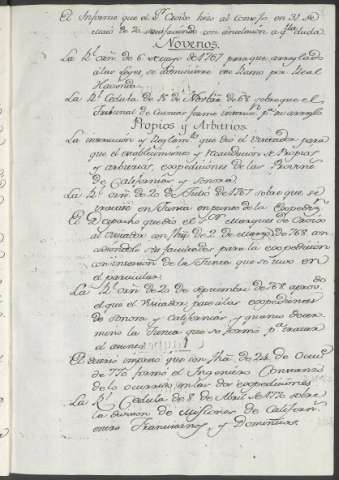 El Informe que el Sr. Croix hizo al Consejo en 31 de
de 70 con
Novenos.
La Rl. orn. de 6 de Mayo de 1767 para que arreglado
a las leyes se administre este Ramo por Real
Hacienda.
La Rl. Cedula de 15 de de 68 sobre que el
Tribunal de Cuentas forme pa. su arreglo
Propios y Arbitrios.
La instruccion y Reglamto. que dio el Visitador para
que el establecimiento y recaudacion de Propios
y arbitrios, expediciones de las Provins.
de Californias y Sonora.
La Rl. orn. de 20 de Julio de 1767 sobre que se
en Junta en punto de la Expedn.
El Despacho que dio el Sor. Marques de Croix
al Visitador con fha. de 2 de Marzo de 768 con
sus facultades para la expedicion
con insercion de la Junta que se tuvo en
el particular.
La Rl. orn. de 20 de Septiembre de 768
el que el Visitador pase a las expediciones
de Sonora y Californias, y quanto
mino la Junta que se formó pa. tratar
el asunto.
El extracto impreso que con fha. de 24 de
de 770 formó el Ingeniero Costanzó
de lo ocurrido en las dos expediciones.
La Rl. Cedula de 8 de Abril de 1770 sobre
la division de Misiones de Californs.
entre Franciscanos, y Dominicos.